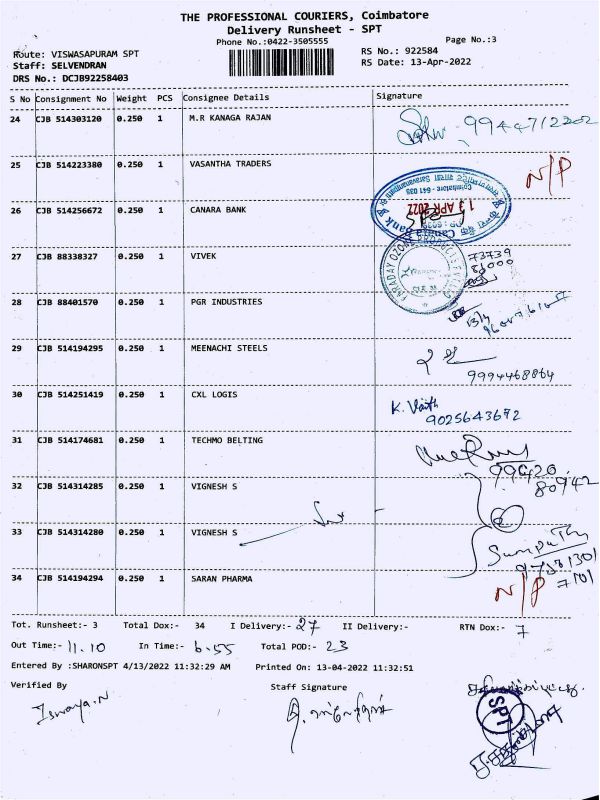 THE PROFESSIONAL COURIERS, Coimbatore
Delivery Runsheet - SPT
Phone No.:0422-3505555
Page No.:3
Route: VISWASAPURAM SPT
RS No.: 922584
Staff: SELVENDRAN
RS Date: 13-Apr-2022
DRS No.: DCJB92258403
S No Consignment No Weight PCS Consignee Details Signature
24 CJB 514303120 0.250 1 M.R KANAGA RAJAN
25 CJB 514223380 0.250 1 VASANTHA TRADERS N/P
26 CJB 514256672 0.250 1 CANARA BANK
13 APR 2022
27 CJB 88338327 0.250 1 VIVEK 73739
81000
28 CJB 88401570 0.250 1 PGR INDUSTRIES
13/4
29 CJB 514194295 0.250 1 MEENACHI STEELS
9994468864
30 CJB 514251419 0.250 1 CXL LOGIS K.
9025643672
31 CJB 514174681 0.250 1 TECHMO BELTING
99420
80942
32 CJB 514314285 0.250 1 VIGNESH S
33 CJB 514314280 0.250 1 VIGNESH S
Sampath
34 CJB 514194294 0.250 1 SARAN PHARMA N/P
Tot. Runsheet:- 3 Total Dox:- 34 I Delivery:- 27 II Delivery:- RTN Dox:- 7
Out Time:- 11.10 In Time:- 6.55 Total POD:- 23
Entered By :SHARONSPT 4/13/2022 11:32:29 AM Printed On: 13-04-2022 11:32:51
Verified By Staff Signature
SPT